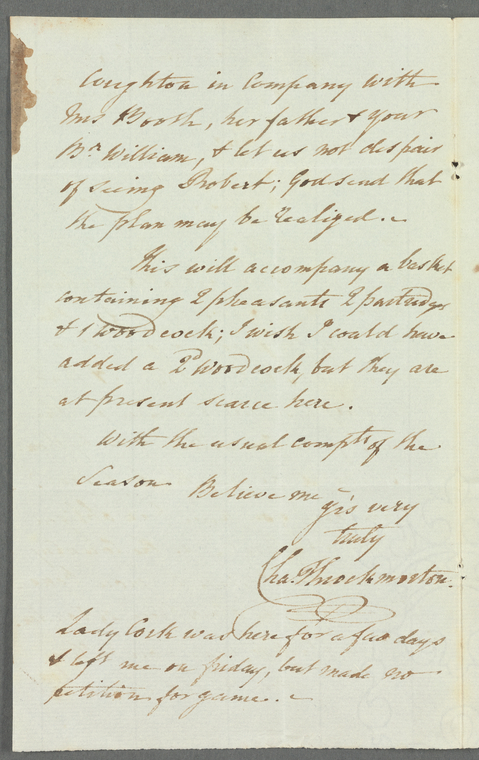 Coughton in Company with
Mrs Booth, her father & your
Br William, & let us not despair
of seeing Robert; God send that
the plan may be realized.
This will accompany a basket
containing 2 pheasants 2 partridges
& 1 woodcock; I wish I could have
added a 2d woodcock, but they are
at present scarce here.
With the usual complts of the
Season Believe me
yrs very
truly
Cha. Throckmorton.
Lady Cork was here for a few days
& left me on friday, but made no
petition for game.